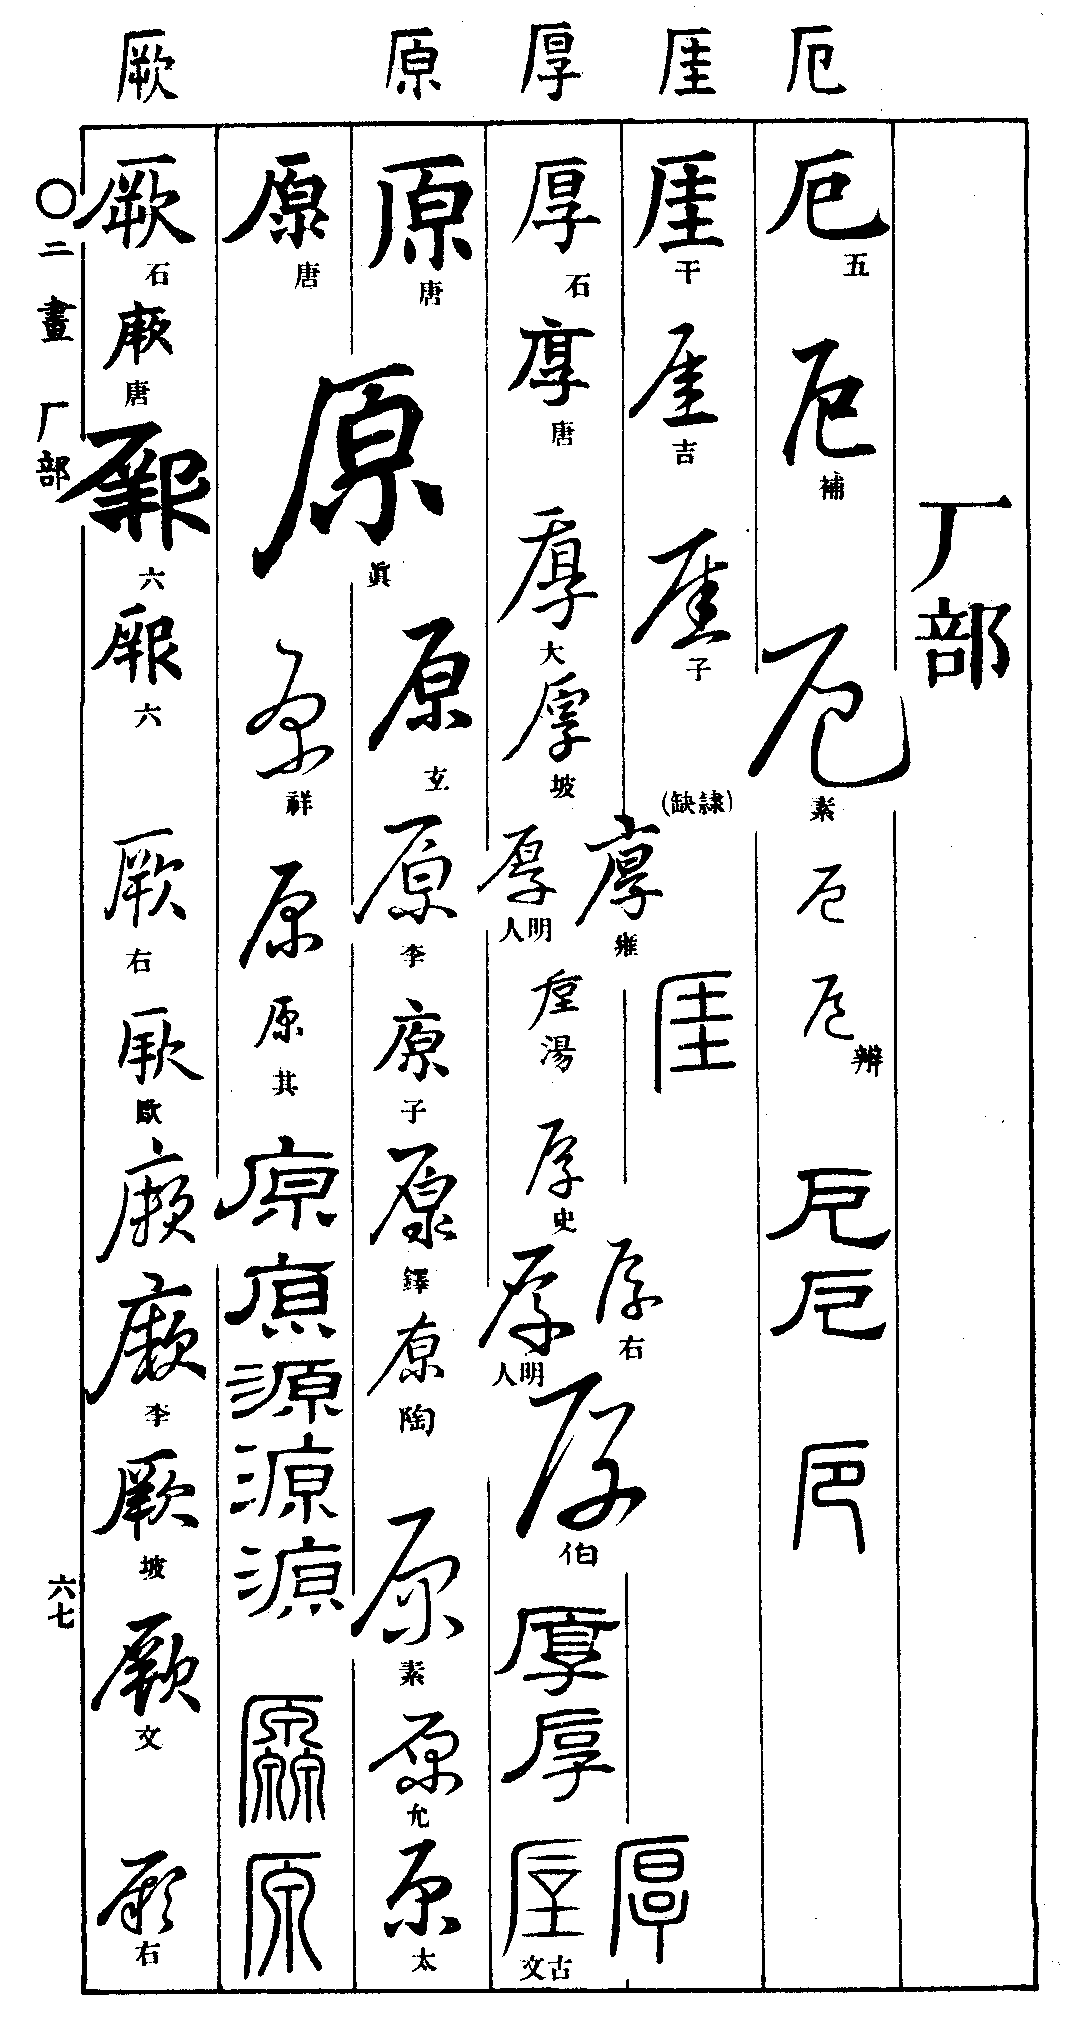 厄 厓 厚 原 厥
厂部
厄五
厄補
厄素
厄
厄辨
厄
厄
厄
厓干
厓吉
厓子
(隸缺)
厓
厚石
厚唐
厚大
厚坡
厚雍
厚明人
厚湯
厚史
厚右
厚明人
厚伯
厚
厚
厚
厚古文
原唐
原眞
原玄
原李
原子
原鐸
原陶
原素
原允
原太
原唐
原祥
原
原其
原
原
源
源
源
原
原
厥石
厥唐
厥六
厥六
厥右
厥歐
厥
厥李
厥坡
厥文
厥右
〇二畫 厂部
六七